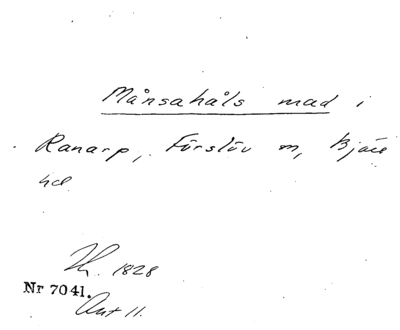 Månsahåls mad i
Ranarp, Förslöv sn, Bjäre
hd
1828
Nr 7041.
Ant 11.